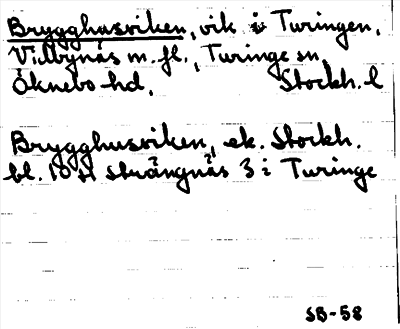 Brygghusviken, vik i Turingen,
Vidbynäs m.fl., Turinge sn,
Öknebo hd, Stockh. l
Brygghusviken, ek. Stockh.
bl. 10 Strängnäs 3 i Turinge
SB-58